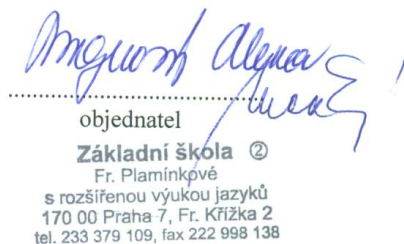 objednatel
Základní škola ②
Fr. Plamínkové
s rozšířenou výukou jazyků
170 00 Praha 7, Fr. Křížka 2
tel. 233 379 109, fax 222 998 138